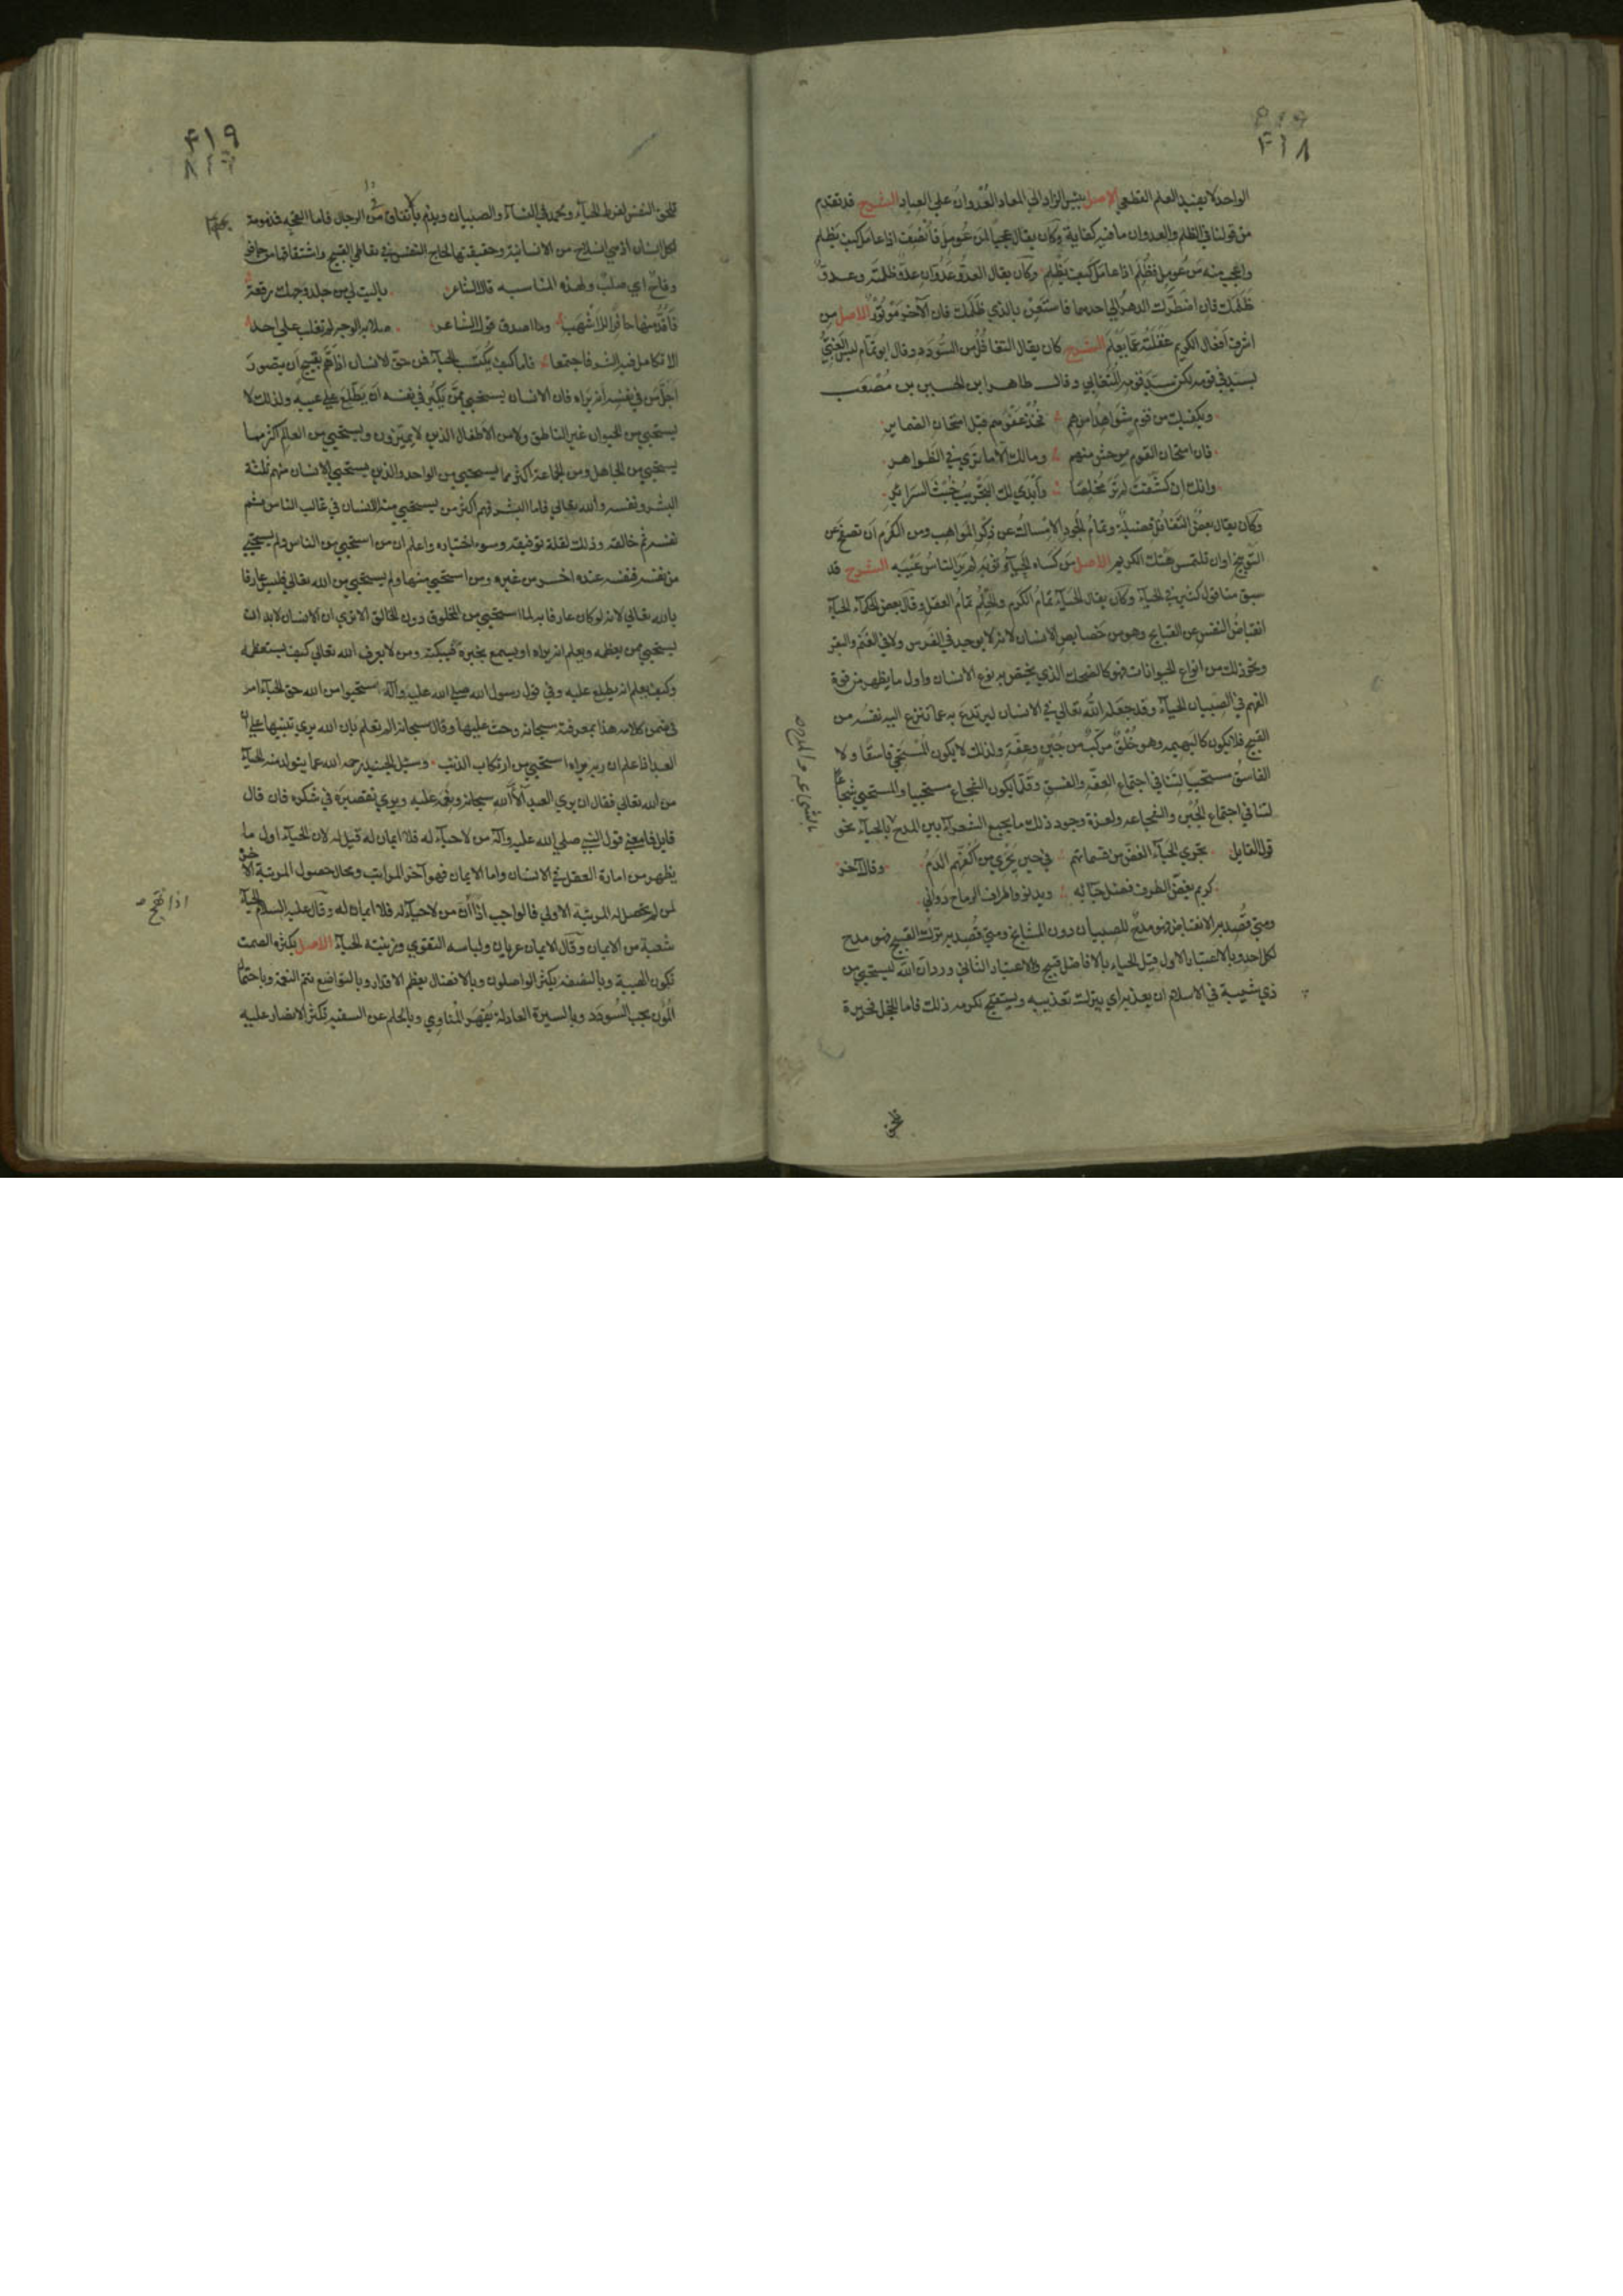 ٤١٨
الواحد لا يفيد العلم القطعي الاصل بئس الزاد الي المعاد العُدْوانُ علي العباد الشرح قد تقدم
من قولنا في الظلم والعدوان ما فيه كفاية وكان يقال عجبًا لمن عُومِلَ فَأُنْصِفَ اذا عامل كيف يظلم
واعجب منه من عُومِل فظُلِمَ اذا عامل كيف يَظْلِم وكان يقال العدوّ عَدُوّان عدوّ ظلمتَه وعدوّ
ظَلَمَك فان اضطرّك الدهر الي احدهما فاستَعِنْ بالذي ظَلَمَك فان الآخر مَوْتُورٌ الاصل مِن
اشرف افعال الكريم غَفْلَتُه عَمّا يَعْلَم الشرح كان يقال التغافُل من السُّودَد وقال ابو تمّام ليس الغبيُّ
بسيد في قومه لكن سيد قومه المُتَغابي وقال طاهر ابن الحسين بن مُصْعَب
ويكفيك من قوم شَوَاهِدُ امرهم فخذ عَفْوَهم قبل امتحان الضماير
فان امتحان القوم يوحش منهم وما لك الا ما تَرَي في الظواهر
وانك ان كشّفتَ لم تَرَ مُخلِصًا وأَبْدَي لك التجريبُ خُبْثَ السرايرِ
وكان يقال بعضُ التغافُل فضيلةٌ وتمامُ الجُودِ الامساكُ عن ذِكْرِ المواهِبِ ومن الكَرَمِ اَن تصفح عن
التوبيخ اوان تلتمس هَتْك الكريم الاصل مَن كَسَاه الحَيآءُ ثَوْبَه لم يَرَ الناسُ عَيْبَه الشرح قد
سبق منا قول كثير في الحيآء وكان يقال الحيآء تمامُ الكرم والحِلْم تمامُ العقل وقال بعض الحكمآء الحيآء
انقباضُ النفسِ عن القبايح وهو من خَصايص الانسان لانه لا يوجد في الفرس ولا في الغنم والبقر
ونحو ذلك من انواع الحيوانات فهو كالضحك الذي يختص به نوع الانسان واول ما يظهر من قوة
الفهم في الصبيان الحيآء وقد جعله الله تعالي في الانسان ليرتدع به عما تنزع اليه نفسُه من
القبيح فلا يكون كالبهيمه وهو خُلْقٌ مركّبٌ من جُبْنٍ وعِفّةٍ ولذلك لا يكون المُستحِي فاسقًا ولا
الفاسقُ مستحيًا لتنافي اجتماع العفة والفسق وقلّما يكون الشجاع مستحييا والمستحيي شجاعا
لتنافي اجتماع الجُبْن والشجاعه ولعزة وجود ذلك ما يجمع الشعرآء بين المدح بالحيآء نحو
بالشجاعه والمدح صح
قول القايل يجري الحيآء الغضّ من قسماتهم في حين يَجْرِي من أَكُفِّهِم الدمُ وقال آخر
كريم يغضّ الطرف فضل حيائه ويدنو واطراف الرماح دواني
ومتي قُصِد به الانقباض فهو مدحٌ للصبيان دون المشايخ ومتي قُصد به ترك القبيح فهو مدح
لكل احد وبالاعتبار الاول قيل الحياء بالافاضل قبيح وبالاعتبار الثاني ورد ان الله ليستحيي من
ذي شيبة في الاسلام ان يعذبه اي يترك تعذيبه ويستقبح لكرمه ذلك فاما الخجل فحيرة
تلحق
٤١٩
تلحق النفس لفرط الحيآء ويُحمد في النسآء والصبيان ويذم بأتفاق من الرجال فاما القحه فمذمومة بكل
لكل انسان اذ هي انسلاخ من الانسانية وحقيقتها لجاج النفس في تعاطي القبيح واشتقاقها من حافر
وقاح اي صلب ولهذه المناسبه قال الشاعر ياليت لي من جلد وجهك رقعةً
فَأَقُدُّ منها حافرًا للأَشْهَبِ وما اصدق قول الشاعر صلابه الوجه لم تغلب علي احد
الا تكامل فيه الشر فاجتمعا فاما كيف يُكْتَسَب الحيآء فمن حق الانسان اذا همّ بقبيح ان يتصور
أَجَلَّ من في نفسه أنه يَراه فان الانسان يستحيي ممّن يَكْبُر في نفسه أن يَطَّلِعَ علي عيبه ولذلك لا
يستحيي من الحيوان غير الناطق ولا من الاطفال الذين لا يميّزون ويستحيي من العالم اكثر مما
يستحيي من الجاهل ومن الجماعة اكثر مما يستحيي من الواحد والذين يستحيي الانسان منهم ثلثة
البشر ونفسه والله تعالي فاما البشر فهم اكثر من يستحيي منه الانسان في غالب الناس ثم
نفسه ثم خالقه وذلك لقلة توفيقه وسوء اختياره واعلم ان من استحيي من الناس ولم يستحيي
من نفسه فنفسه عنده اخس من غيره ومن استحيي منها ولم يستحيي من الله تعالي فليس عارفا
بالله تعالي لانه لو كان عارفا به لما استحيي من المخلوق دون الخالق الا تري ان الانسان لا بد ان
يستحيي ممن يعظمه ويعلم انه يراه او يسمع بخبره فيبكته ومن لا يعرف الله تعالي كيف يستعظمه
وكيف يعلم انه يطلع عليه وفي قول رسول الله صلي الله عليه وآله استحيوا من الله حق الحيآء امر
في ضمن كلامه هذا بمعرفته سبحانه وحث عليها وقال سبحانه الم تعلم بان الله يري تنبيها علي ان
العبد اذا علم ان ربه يراه استحيي من ارتكاب الذنب وسئل الجنيد رحمه الله عما يتولد منه الحيآء
من الله تعالي فقال ان يري العبد آلآء الله سبحانه ونعمه عليه ويري تقصيره في شكره فان قال
قايل فما معني قول النبي صلي الله عليه وآله من لا حيآء له فلا ايمان له قيل له لان الحيآء اول ما
يظهر من امارة العقل في الانسان واما الايمان فهو آخر المراتب ومحال حصول المرتبة الآخرة
لمن لم تحصل له المرتبة الاولي فالواجب اذًا أن من لا حيآء له فلا ايمان له وقال عليه السلام الحيآء
شعبة من الايمان وقال الايمان عريان ولباسه التقوي وزينته الحيآء الاصل بكثرة الصمت
تكون الهيبة وبالنصفه يكثر الواصلون وبالافضال يعظم الاقدار وبالتواضع تتم النعمة وباحتمال
المُؤَن يجب السُّودَد وبالسيرة العادلة يُقْهَر المُناوِي وبالحلم عن السفيه تكثر الانصار عليه